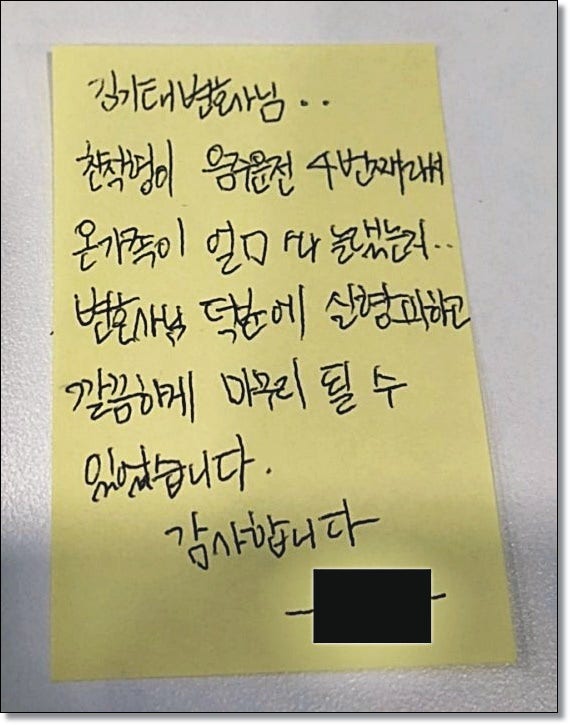 김기태변호사님..
음주운전 4번째라서
온가족이 얼마나 놀랬는지..
변호사님 덕분에 실형피하고
깔끔하게 마무리 될 수
있었습니다.
감사합니다